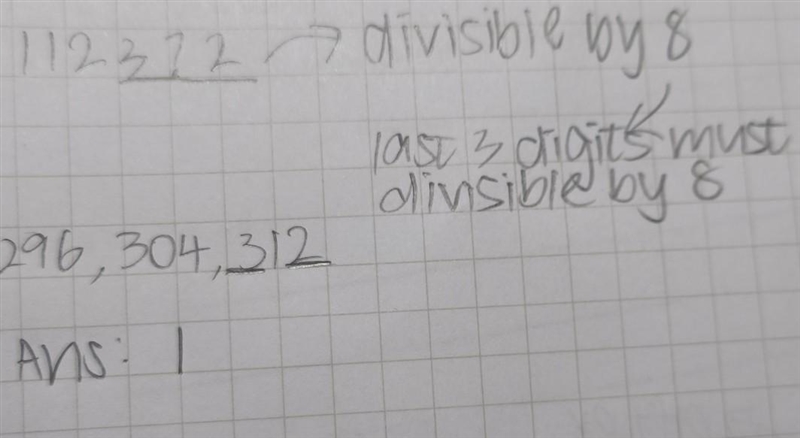 1123?2 → divisible by 8
last 3 digits must
divisible by 8
296, 304, 312
Ans: 1